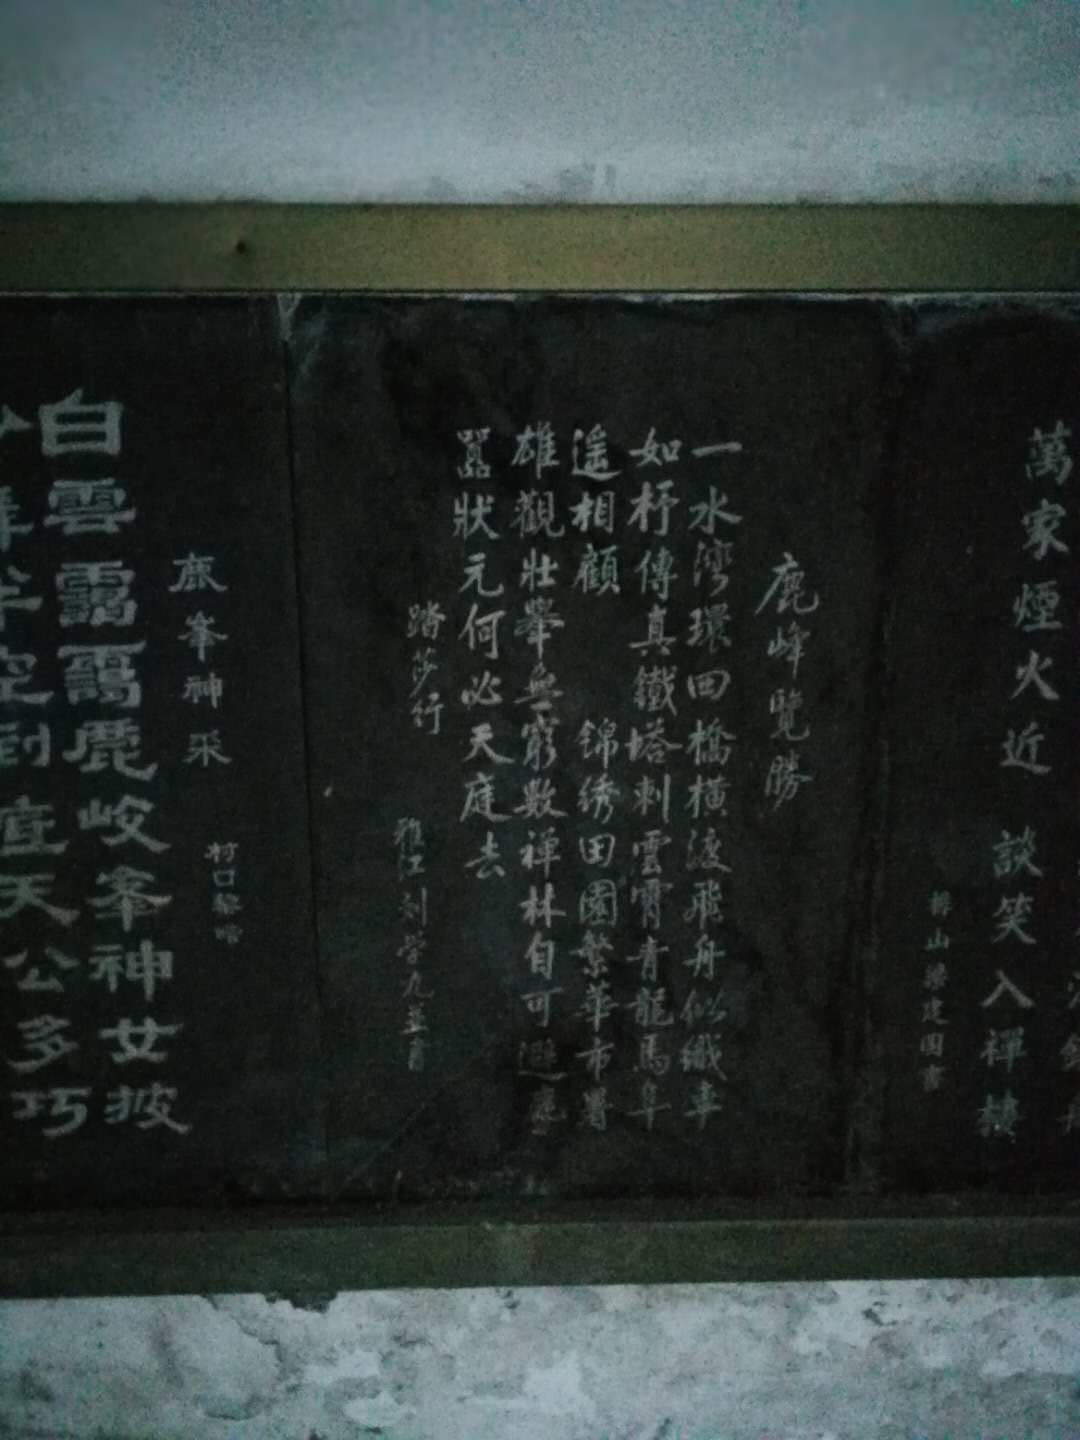 萬家煙火近 談笑入禪樓
梁建国書
鹿峰覽勝
一水湾環田橋橫渡飛舟似織車
如杼傳真鐵塔刺雲霄青龍馬阜
遥相顧 錦绣田園繁華市署
雄觀壯舉無窮数禅林自可避
嚣狀元何必天庭去
踏莎行
雅江刘学九並書
鹿峯神采
村口黎
白雲靄靄鹿峧峯神女披
半空到 天公多巧